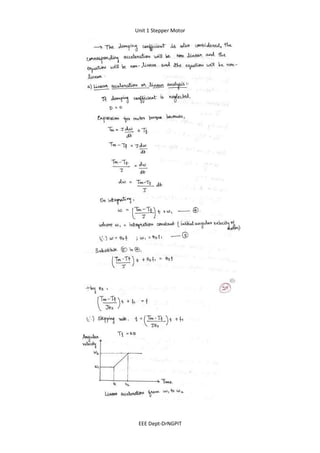 Unit 1 Stepper Motor
→ The damping coefficient is also considered, the
corresponding acceleration will be non linear and the
equation will be also will be non-
linear.
a) Linear acceleration or linear analysis:-
If damping coefficient is neglected
D = 0
Expression for motor torque becomes,
Tm = J dw/dt + Tf
Tm - Tf = J dw/dt
Tm - Tf / J = dw/dt
dw = Tm - Tf / J . dt
On integrating,
w = (Tm - Tf / J) t + w1 —— ④
where w1 = integration constant (initial angular velocity of
motor)
w = θs f ; w1 = θs f1 —— ⑤
Substitute ⑤ in ④,
(Tm - Tf / J) t + θs f1 = θs f
÷ by θs,
(Tm - Tf / Jθs) t + f1 = f
Stepping rate, f = (Tm - Tf / Jθs) t + f1
Angular
velocity
→ Time
Linear acceleration from w1 to w2
EEE Dept-DrNGPIT